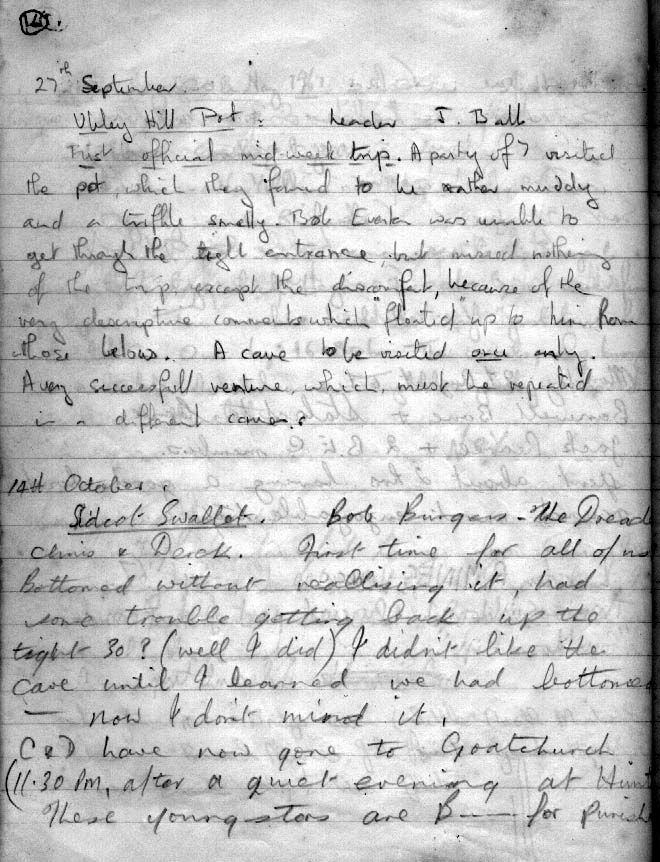 141.
27th September
Ubley Hill Pot: Leader J. Ball
First official mid-week trip. A party of 7 visited
the pot, which they found to be rather muddy
and a trifle smelly. Bob was unable to
get through the tight entrance, but missed nothing
of the trip except the discomfort, because of the
very descriptive comments which "floated" up to him from
those below. A cave to be visited once only.
A very successfull venture, which must be repeated
in a different cave.
14th October.
Sidcot Swallet. Bob Burgess - The Dread
Chris & Derek. First time for all of us
Bottomed without realising it, had
some trouble getting back up the
tight 30? (well I did) I didn't like the
cave until I learned we had bottomed
— now I don't mind it.
C & D have now gone to Goatchurch
(11.30 PM, after a quiet evening at Hunt
These youngsters are B--- for punish